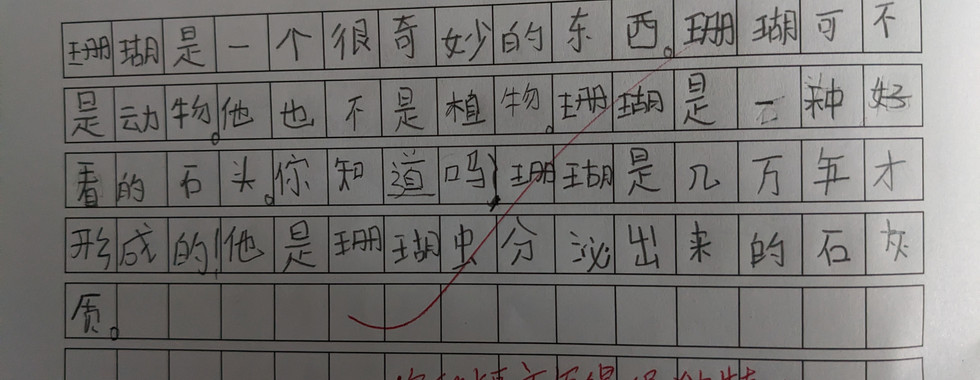 珊瑚是一个很奇妙的东西。珊瑚可不
是动物。他也不是植物。珊瑚是一种好
看的石头。你知道吗？珊瑚是几万年才
形成的！他是珊瑚虫分泌出来的石灰
质。